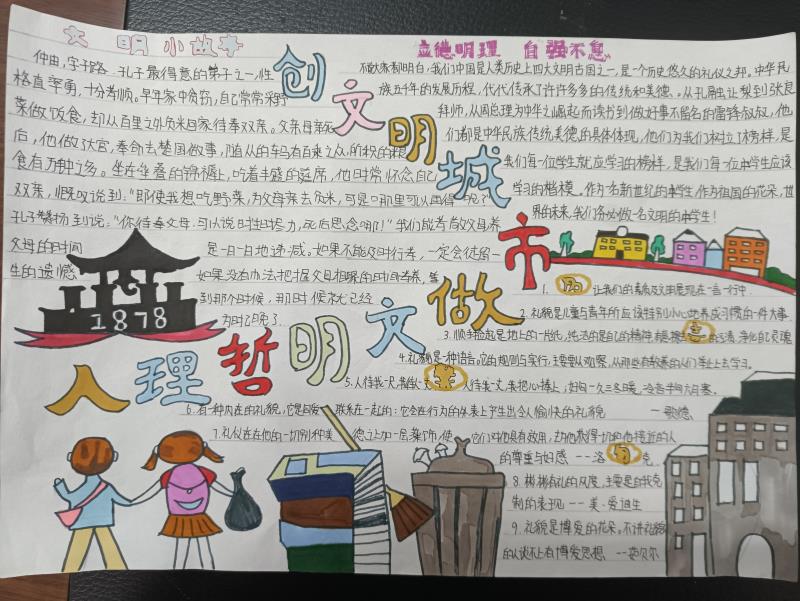 文明小故事
仲由,字子路、孔子最得意的弟子之一,性
格直率勇,十分孝顺。早年家中贫穷,自己常常采野
菜做饭食,却从百里之外负米回家侍奉双亲。父亲母亲死
后,他做大官,奉命去楚国做事,随从的车马有百乘之众,所积的粮
食有万钟之多。坐在垒叠的锦褥上,吃着丰盛的筵席,他时常怀念自己
双亲,慨叹说到:“即使我想吃野菜,为父母亲去负米,可是哪里可以再得呢?”
孔子赞扬到说:“你侍奉父母,可以说
父母的时间 是一日一日地递减,如果不能及时行孝,一定会徒留一
生的遗憾 如果没有办法把握父母
到那个时候,那时候就已经
为时已晚了.
1878
创文明城市
做文明哲理人
立德明理 自强不息
我们中国是人类历史上四大文明古国之一,是一个历史悠久的礼仪之邦。中华民
族五千年的发展历程,代代传承了许许多多的传统和美德、从孔融让梨到张良
拜师,从周总理为中华之崛起而读书到做好事不留名的雷锋叔叔,他
们都是中华民族传统美德的具体体现,他们为我们树立了榜样,是
我们每一位学生就应学习的榜样,是我们每一位中学生应该
学习的楷模。作为一名新世纪的中学生,作为祖国的花朵,世
界的未来,我们务必做一名文明的中学生!
1. 让我们的素质及文明展现在一言一行中.
2. 礼貌是儿童与青年所应该特别小心地养成习惯的一件大事.
3. 顺手捡起是地上的一片纸,纯洁的是自己的精神, 的污渍,净化自己灵魂
4. 礼貌是一种语言。它的规则与实行,主要要从观察,从那些有教养的人们举止上去学习。
5. 人待我一尺, 人待我一丈,我把心捧上,好叫一久三冬暖,
6. 有一种内在的礼貌,它是同爱 联系在一起的:它会在行为的外表上产生出令人愉快的礼貌 ——歌德
7. 礼仪是在他的一切别种美 德之上加一层藻饰,使 它们对他具有效用,去为他获得一切和他接近的人
的尊重与好感 ——洛 克
8. 彬彬有礼的风度,主要是自我克
制的表现 ——美·爱迪生
9. 礼貌是博爱的花朵。不讲礼貌
的人谈不上有博爱思想 ——茹贝尔